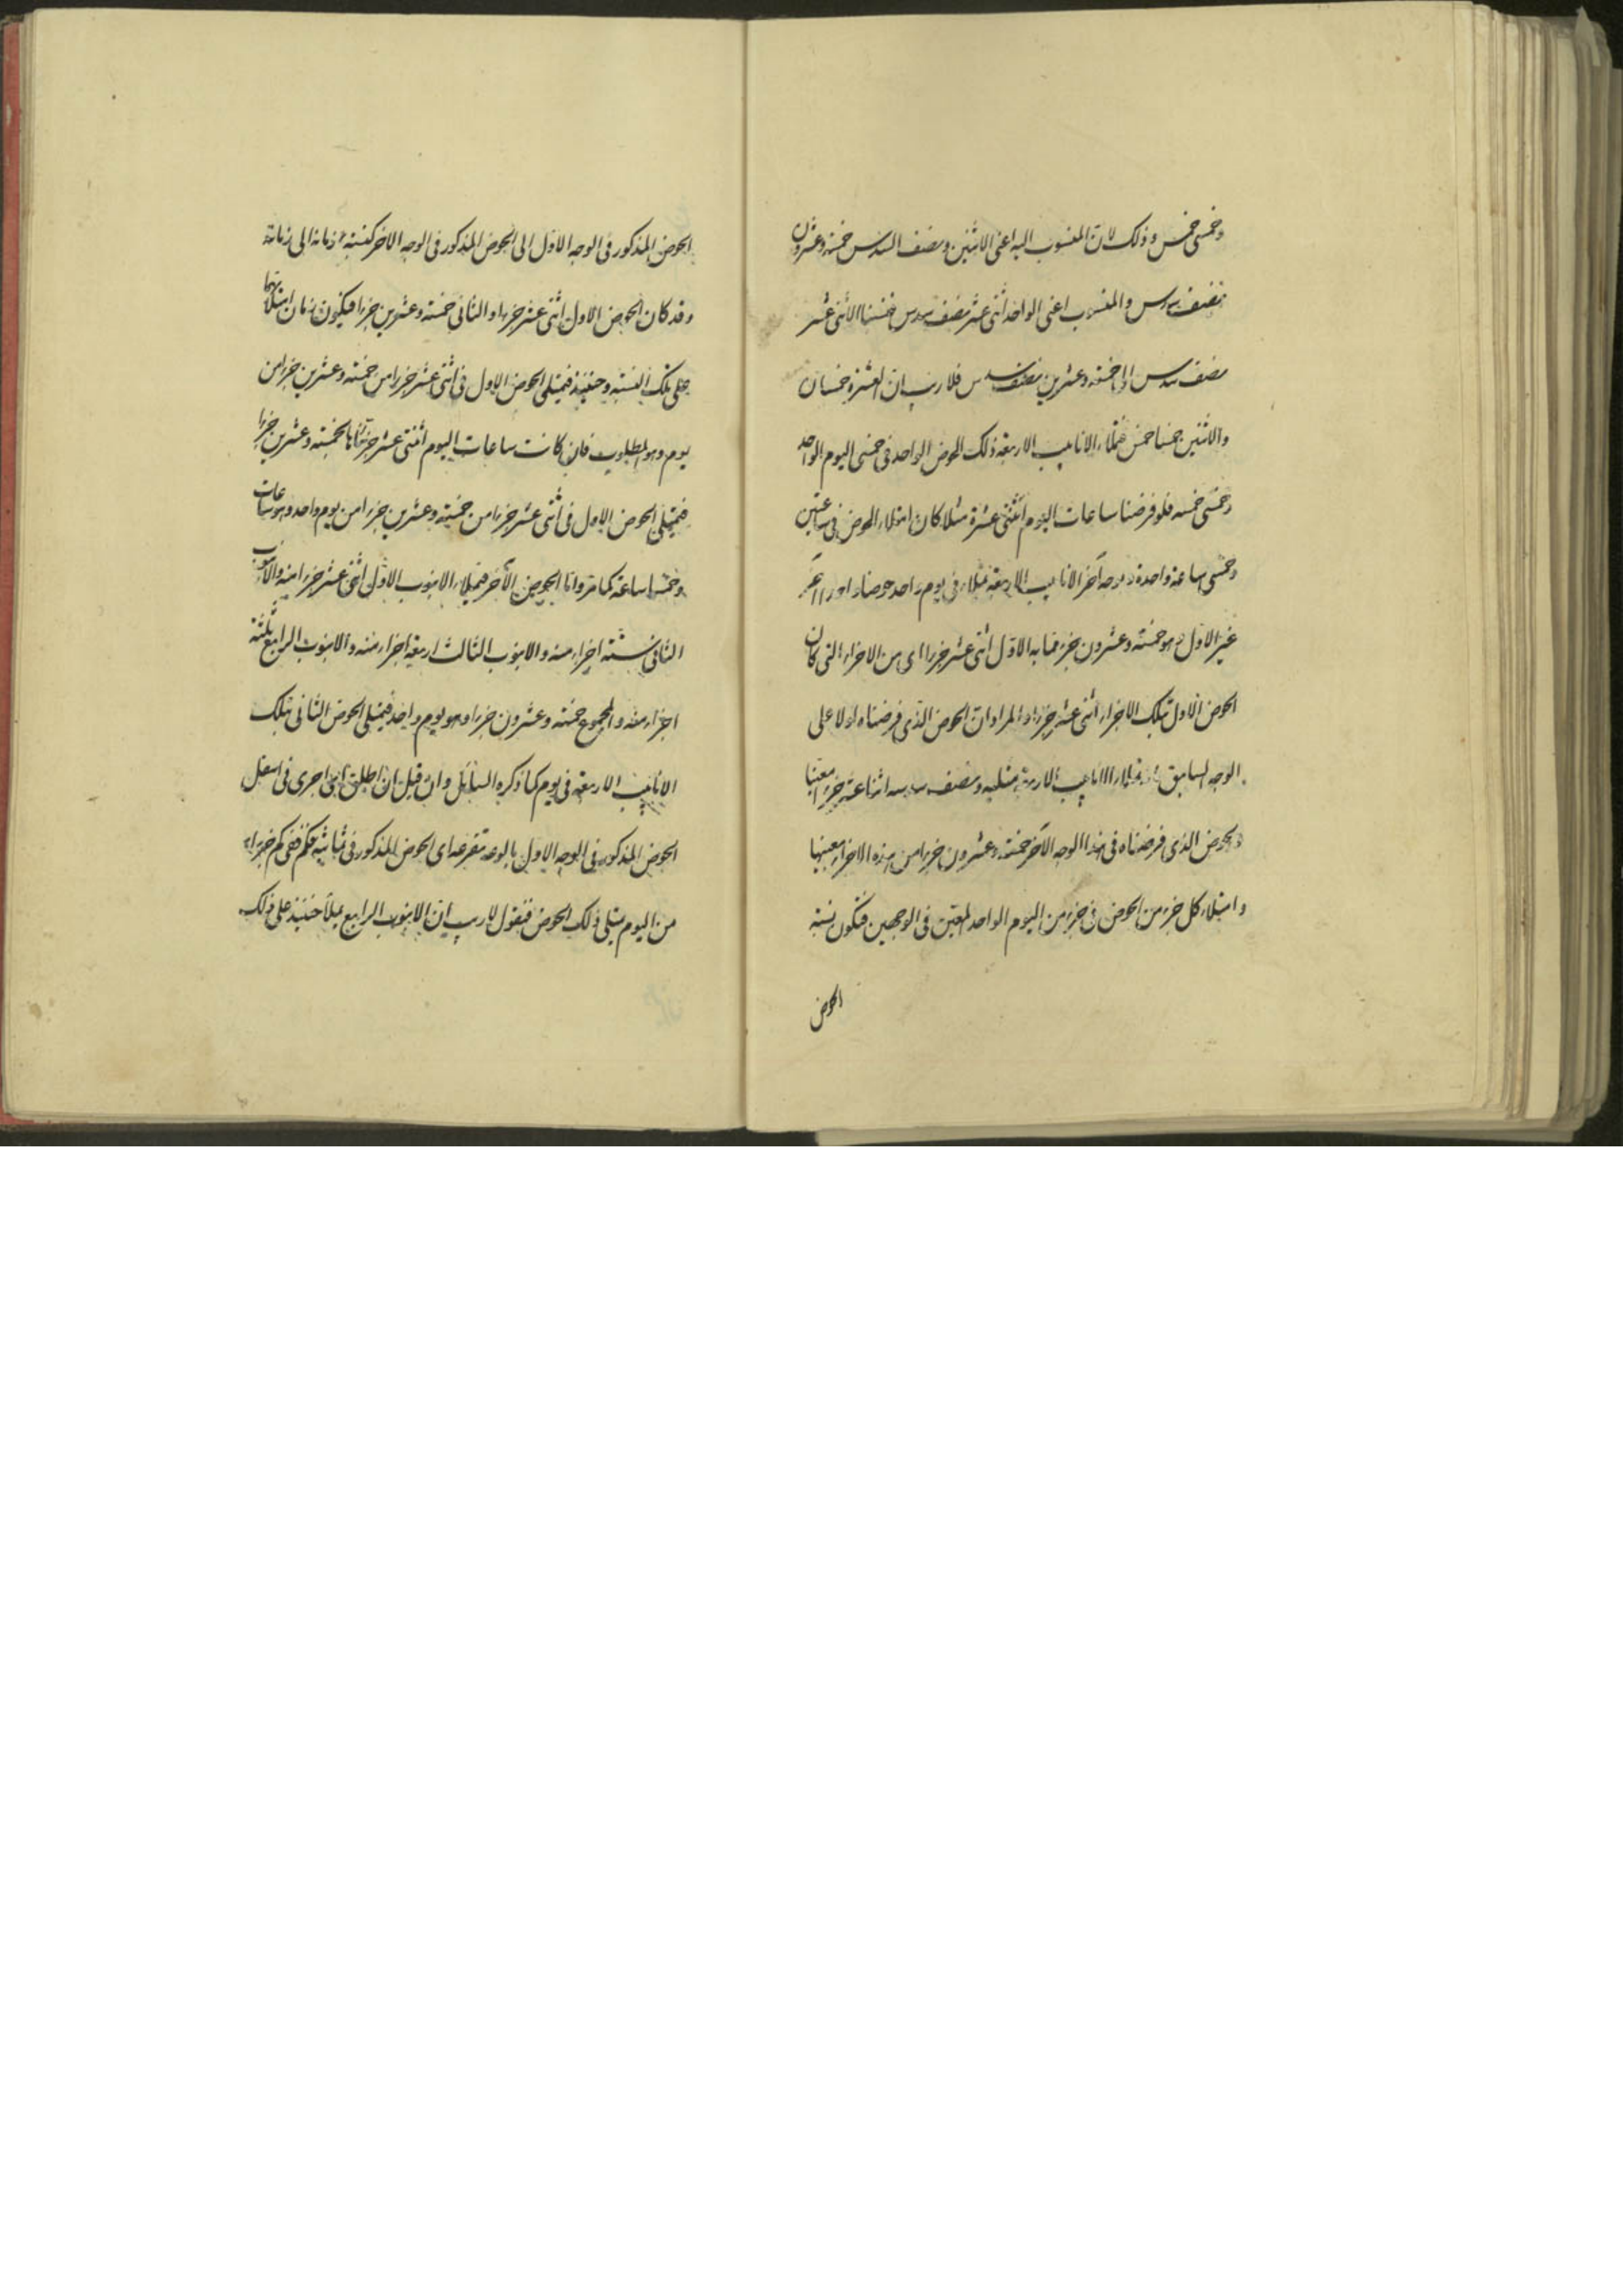 وخمسى خمس وذلك لان المنسوب اليه اعنى الاثنين ونصف السدس خمسة وعشرون
نصف سدس والمنسوب اعنى الواحد اثنى عشر نصف سدس فنسبنا الاثنى عشر
نصف سدس الى خمسة وعشرين نصف سدس فلا ريب ان العشرة خمسان
والاثنين خمسا خمس فتملاء الانابيب الاربعة ذلك الحوض الواحد فى خمسى اليوم الواحد
وخمسى خمسه فلو فرضنا ساعات اليوم اثنتى عشرة مثلا كان امتلاء الحوض فى ساعتين
وخمسى ساعة واحدة وبوجه آخر الانابيب الاربعة تملاء فى يوم واحد حوضا
غير الاول هو خمسة وعشرون جزء مما به الاول اثنى عشر جزءا اى من الاجزاء التى كان
الحوض الاول بتلك الاجزاء اثنى عشر جزءا والمراد ان الحوض الذى فرضناه اولا على
الوجه السابق الانابيب الاربعة مثليه ونصف سدسه اثنا عشر جزءا معينا
والحوض الذى فرضناه فى هذا الوجه الآخر خمسة وعشرون جزءا من هذه الاجزاء بعينها
وامتلاء كل جزء من الحوض فى جزء من اليوم الواحد المعين فى الوجهين فتكون نسبة
الحوض
الحوض المذكور فى الوجه الاول الى الحوض المذكور فى الوجه الاخر كنسبة زمانه الى زمانه
وقد كان الحوض الاول اثنى عشر جزءا والثانى خمسة وعشرين جزءا فيكون زمان امتلائهما
على تلك النسبة وحينئذ فيمتلى الحوض الاول فى اثنى عشر جزءا من خمسة وعشرين جزءا من
يوم وهو المطلوب فان كانت ساعات اليوم اثنتى عشر جزءا بالخمسة وعشرين جزءا
فيمتلى الحوض الاول فى اثنى عشر جزءا من خمسة وعشرين جزءا من يوم واحد وهو ساعات
وخمسا ساعة كما مر واما الحوض الآخر فيملاء الانبوب الاول اثنى عشر جزءا منه والانبوب
الثانى ستة اجزاء منه والانبوب الثالث اربعة اجزاء منه والانبوب الرابع ثلثة
اجزاء منه والمجموع خمسة وعشرون جزءا وهو يوم واحد فيمتلى الحوض الثانى بتلك
الانابيب الاربعة فى يوم كما ذكره السائل وان قيل ان اطلق اى اجرى فى اسفل
الحوض المذكور فى الوجه الاول بالوعة تفرغه اى الحوض المذكور فى ثمانية ففى كم جزءا
من اليوم يمتلى ذلك الحوض فنقول لا ريب ان الانبوب الرابع يملأ حينئذ على ذلك